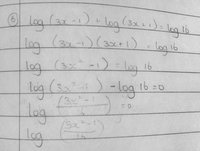 ⑤ log (3x-1) + log (3x+1) = log 16
log (3x-1)(3x+1) = log 16
log (3x²-1) = log 16
log (3x²-1) - log 16 = 0
log (3x²-1 / ) = 0
log (9x²-1 / 16)